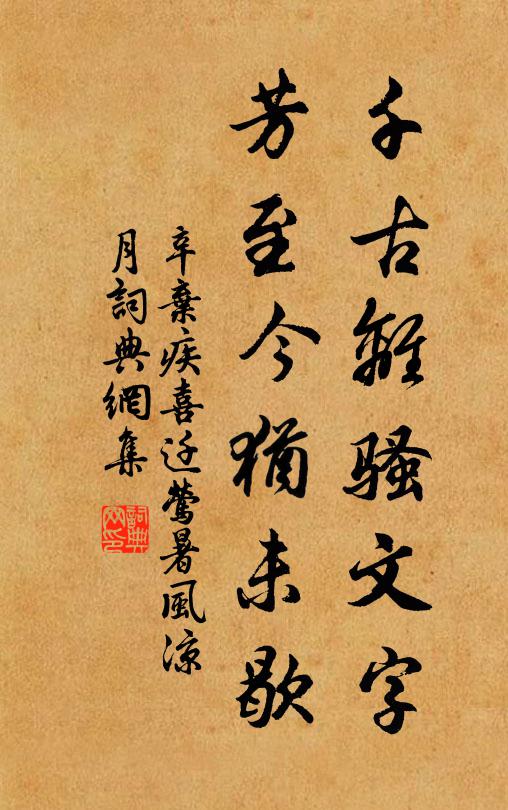 千古離騷文字
芳至今猶未歇
辛棄疾喜迁鶯暑風涼
月詞典網集
詞典网印